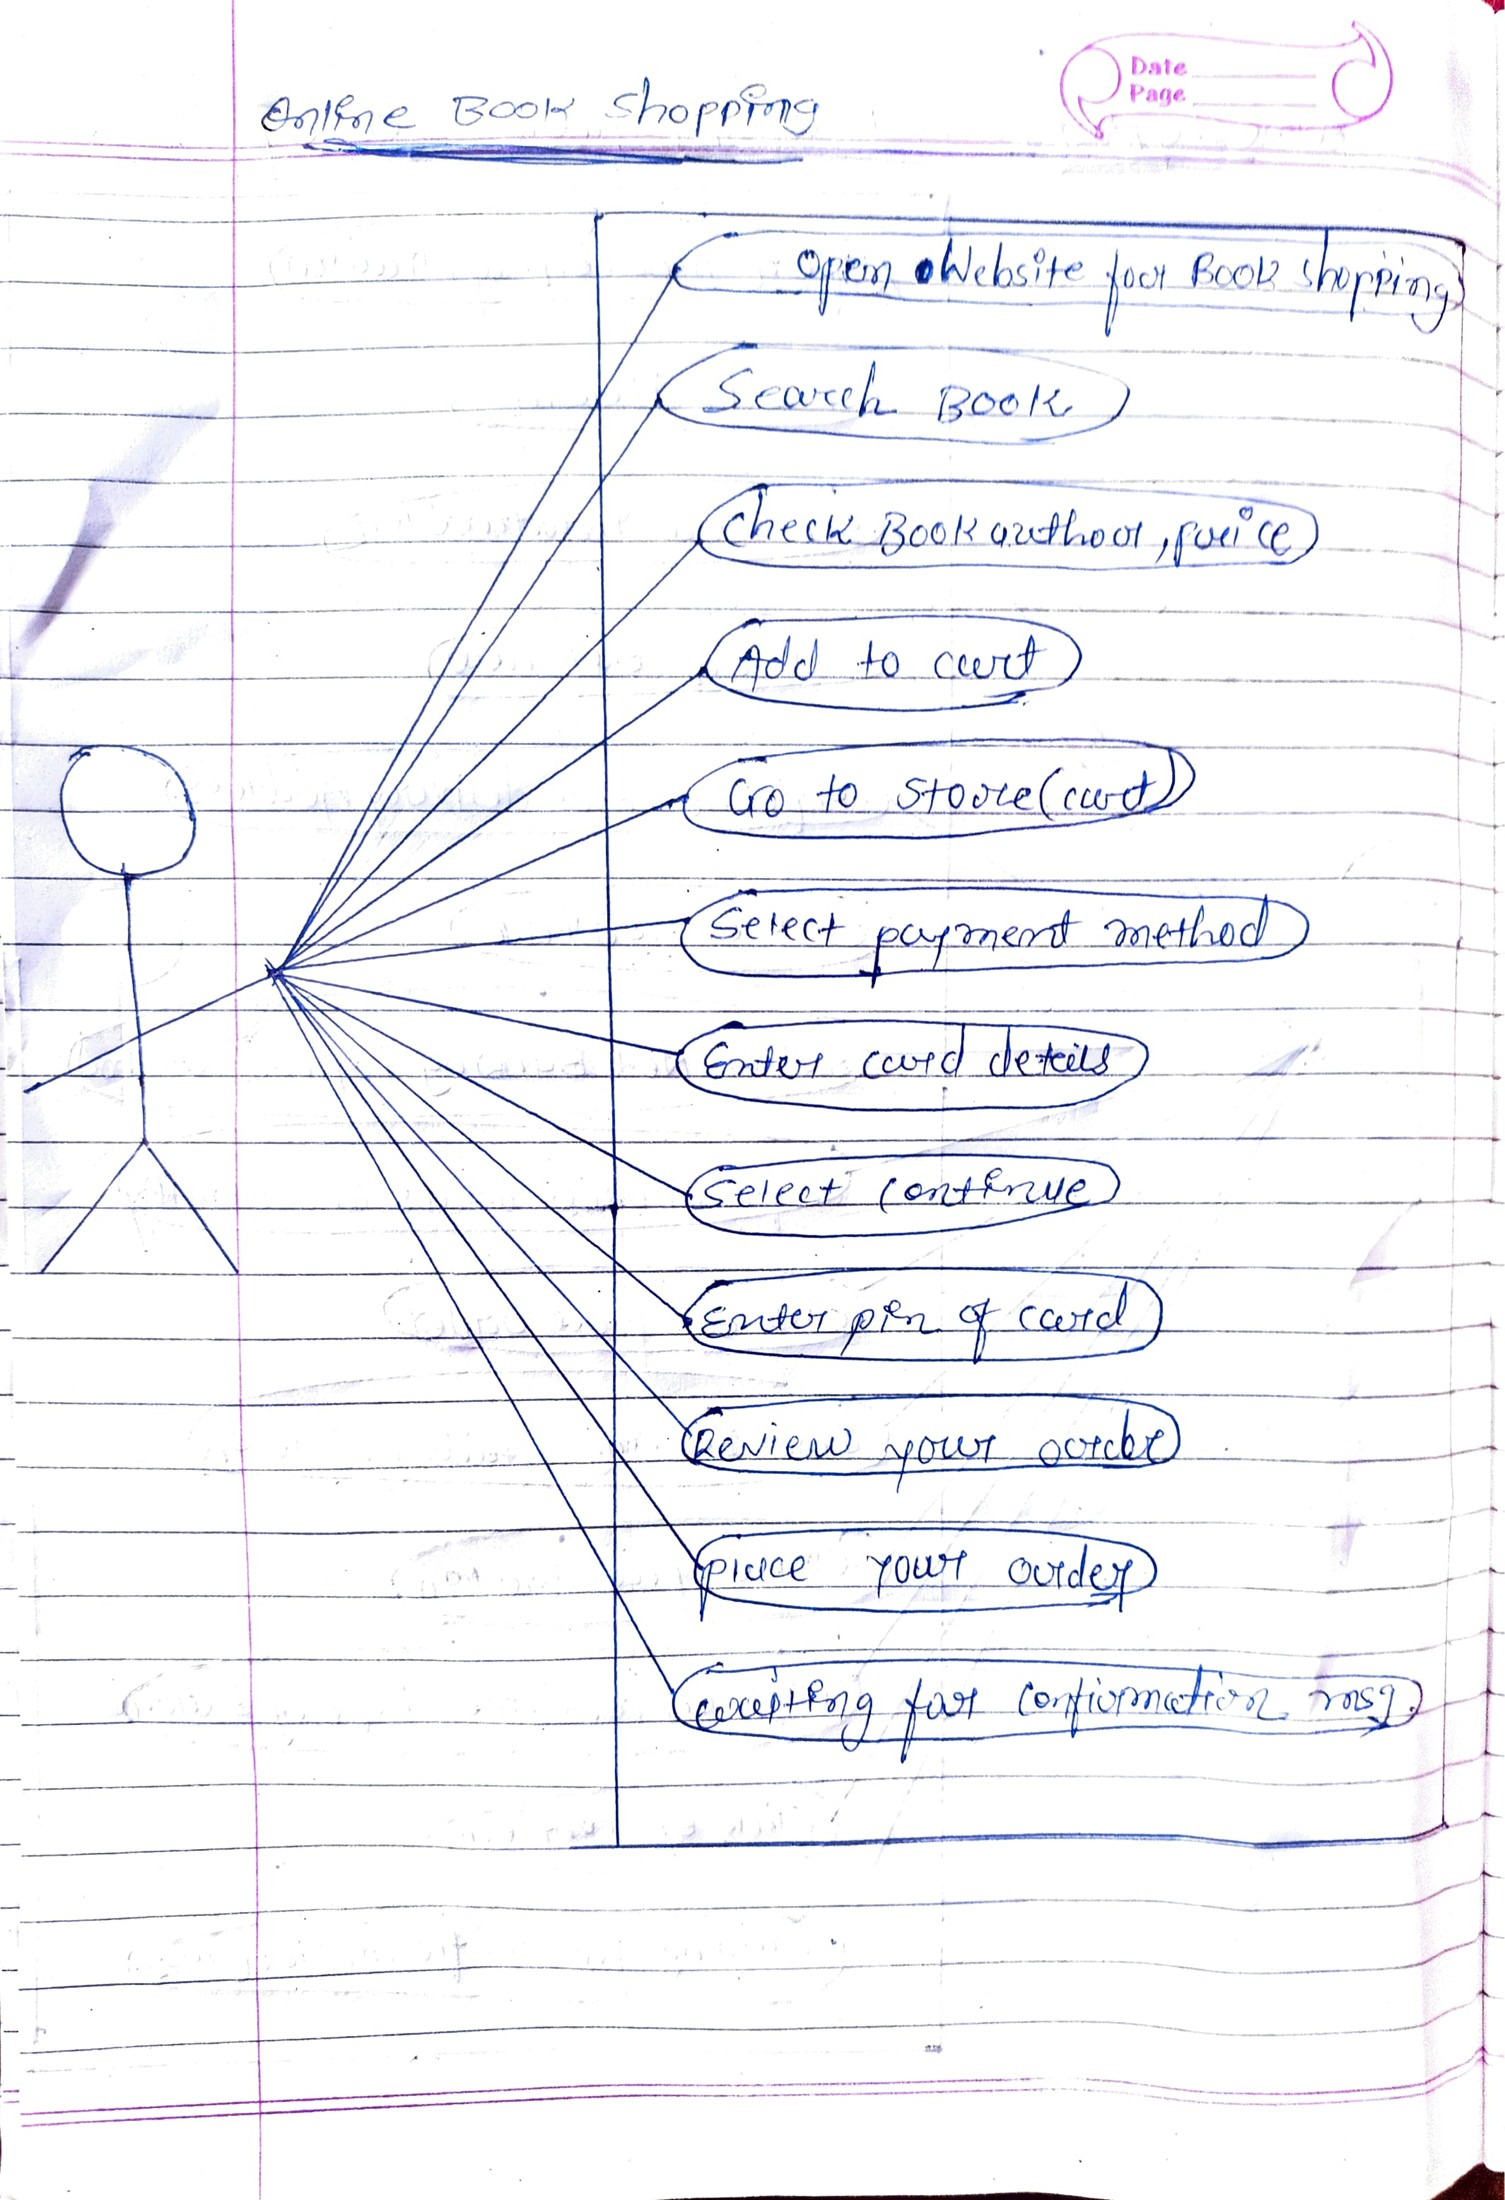 Online Book Shopping
Date
Page
Open Website for Book shopping
Search Book
Check Book author, price
Add to cart
Go to store (cart)
Select payment method
Enter card details
Select continue
Enter pin of card
Review your order
place your order
waiting for confirmation msg.